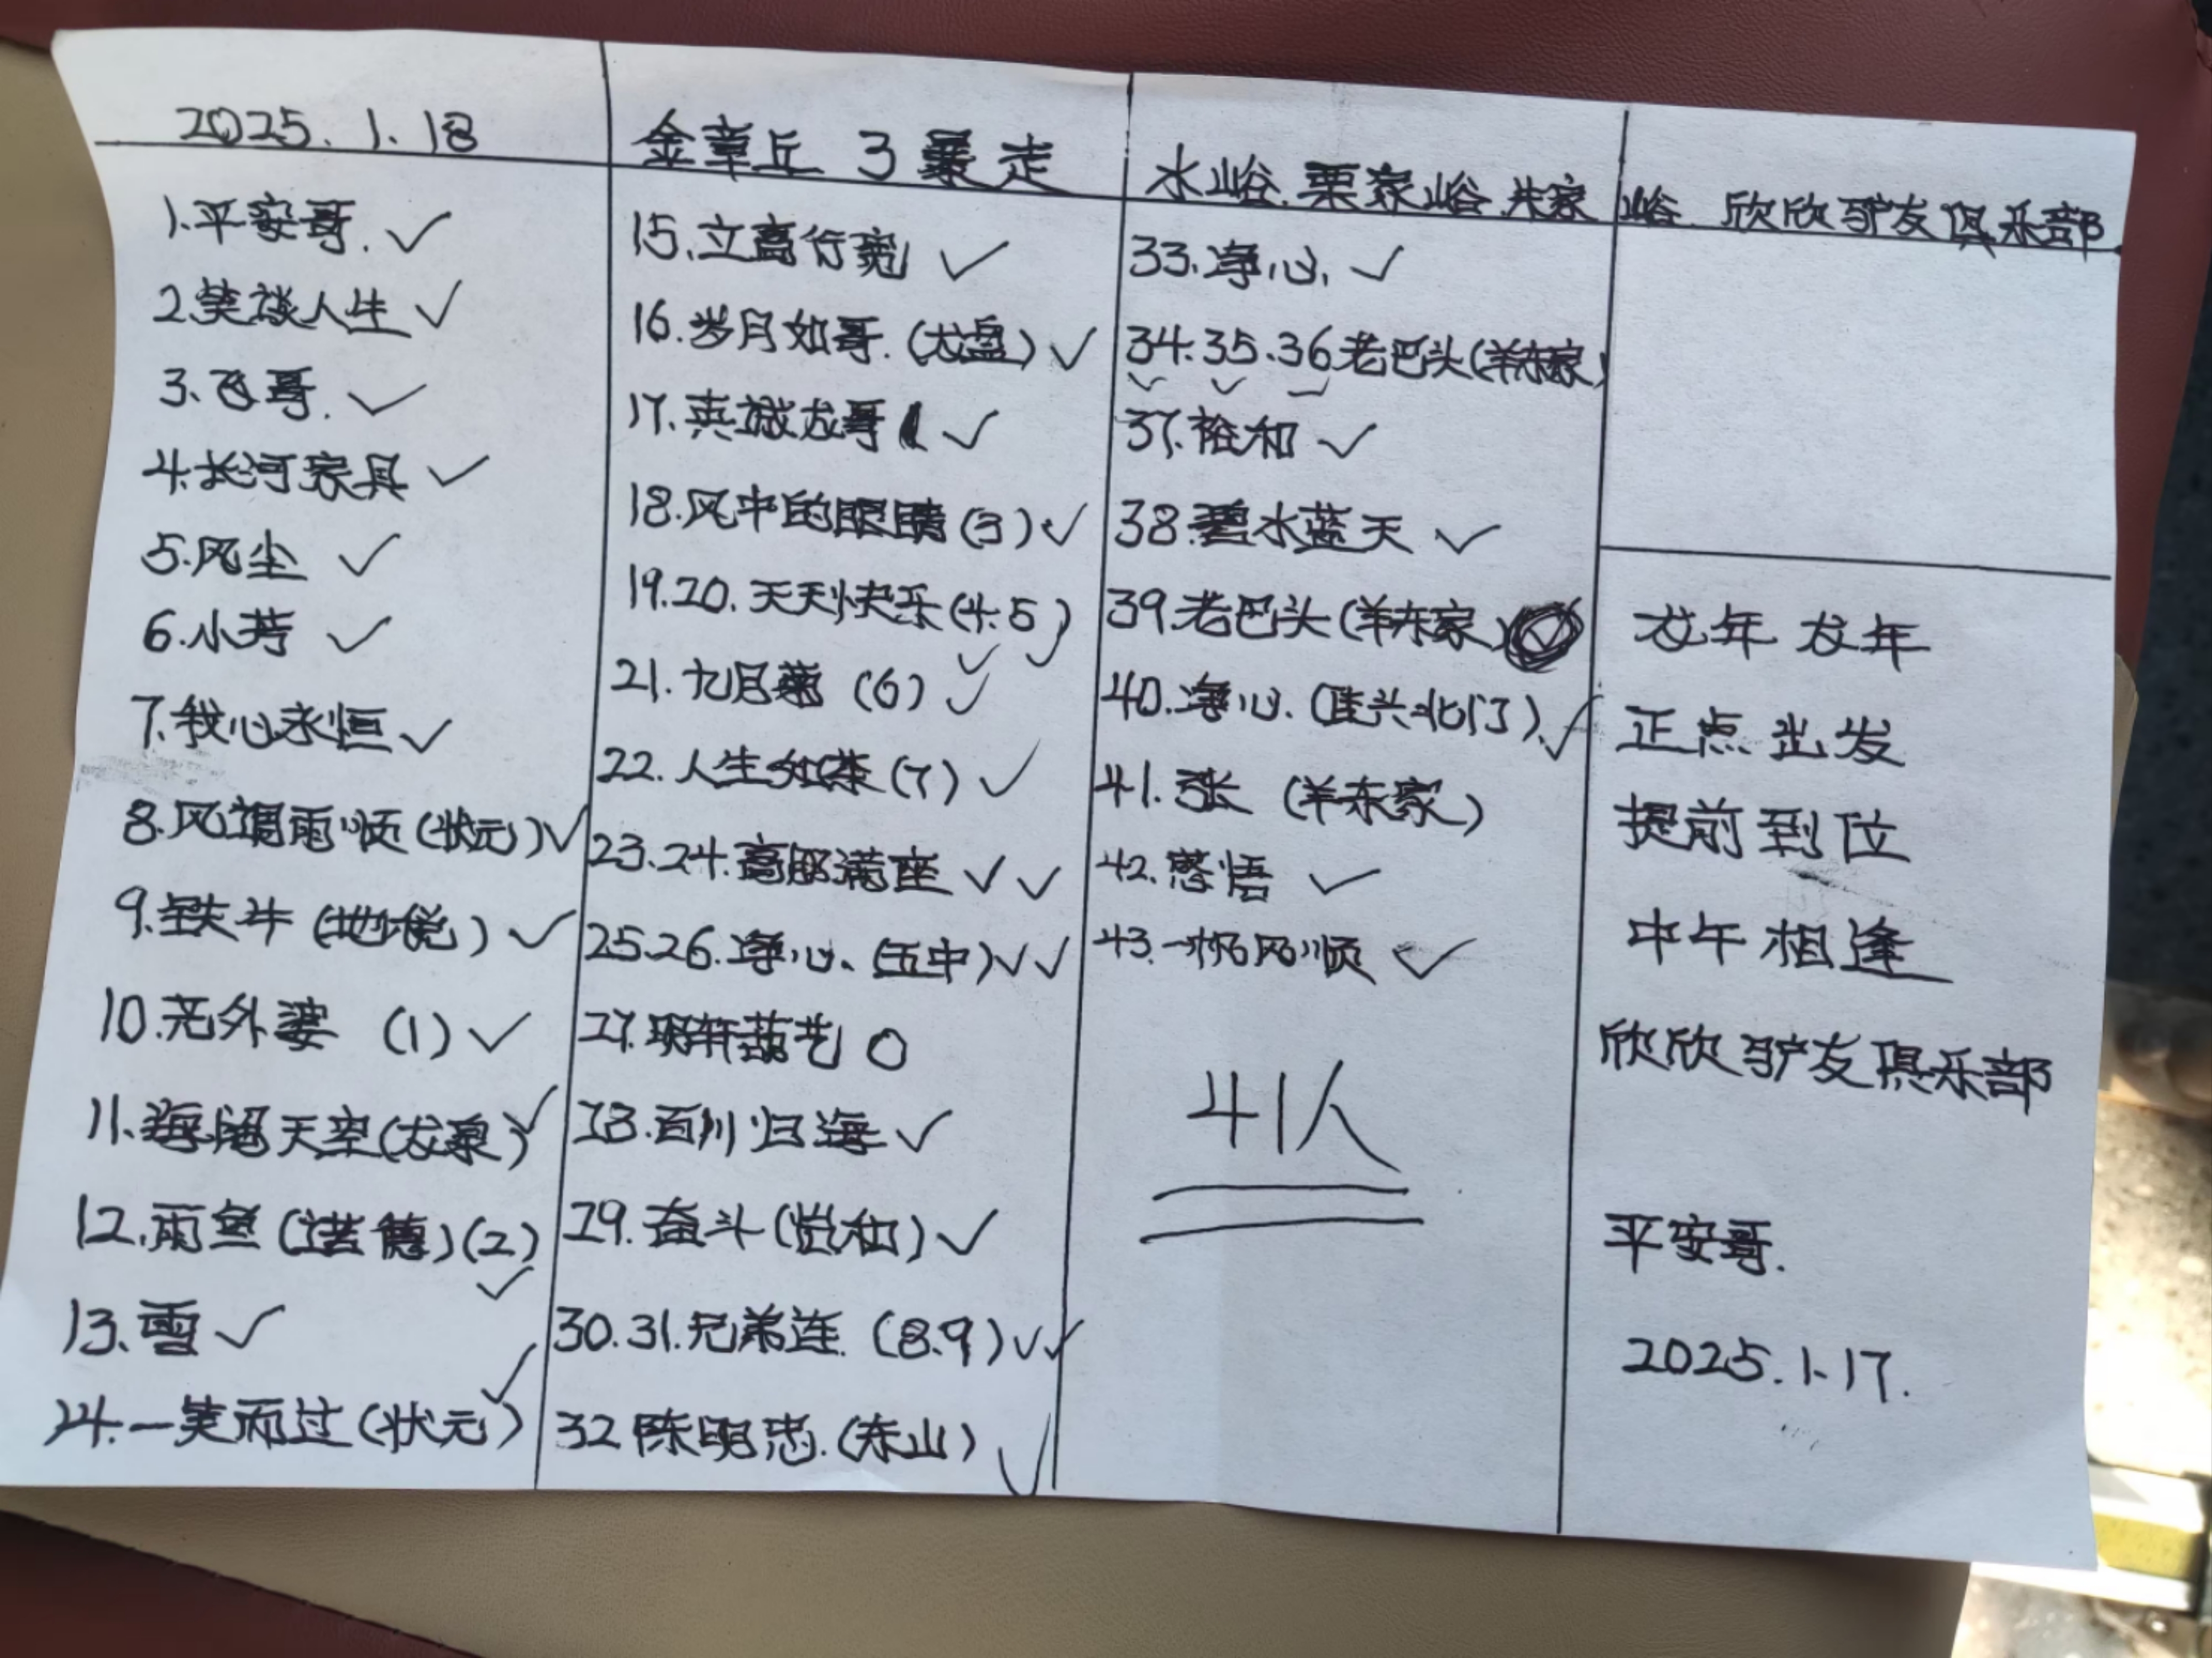 2025.1.18
1.平安哥.✓
2.笑谈人生✓
3.飞哥.✓
4.长河家具✓
5.风尘✓
6.小芳✓
7.我心永恒✓
8.风调雨顺(状元)✓
9.铁牛(地税)✓
10.光外婆(1)✓
11.海阔天空(龙泉)✓
12.雨垒(诺德)(2)✓
13.雪✓
14.一笑而过(状元)✓
金章丘 3暴走
15.立高行宽✓
16.岁月如哥.(龙盘)✓
17.英城龙哥✓
18.风中的眼睛(3)✓
19.20.天天快乐(4.5)✓✓
21.九月菊(6)✓
22.人生如茶(7)✓
23.24.高朋满座✓✓
25.26.净心、(五中)✓✓
27.明轩葫艺O
28.百川归海✓
29.奋斗(世和)✓
30.31.兄弟连.(8.9)✓✓
32陈明忠.(东山)✓
水峪.栗家峪.朱家峪.欣欣驴友俱乐部.
33.净心、✓
34.35.36老巴头(羊东家)✓✓✓
37.裕和✓
38.碧水蓝天✓
39.老巴头(羊东家)
40.净心.(埠头北门)✓
41.张(羊东家)
42.感悟✓
43.一帆风顺✓
41人
龙年龙年
正点出发
提前到位
中午相逢
欣欣驴友俱乐部
平安哥.
2025.1.17.